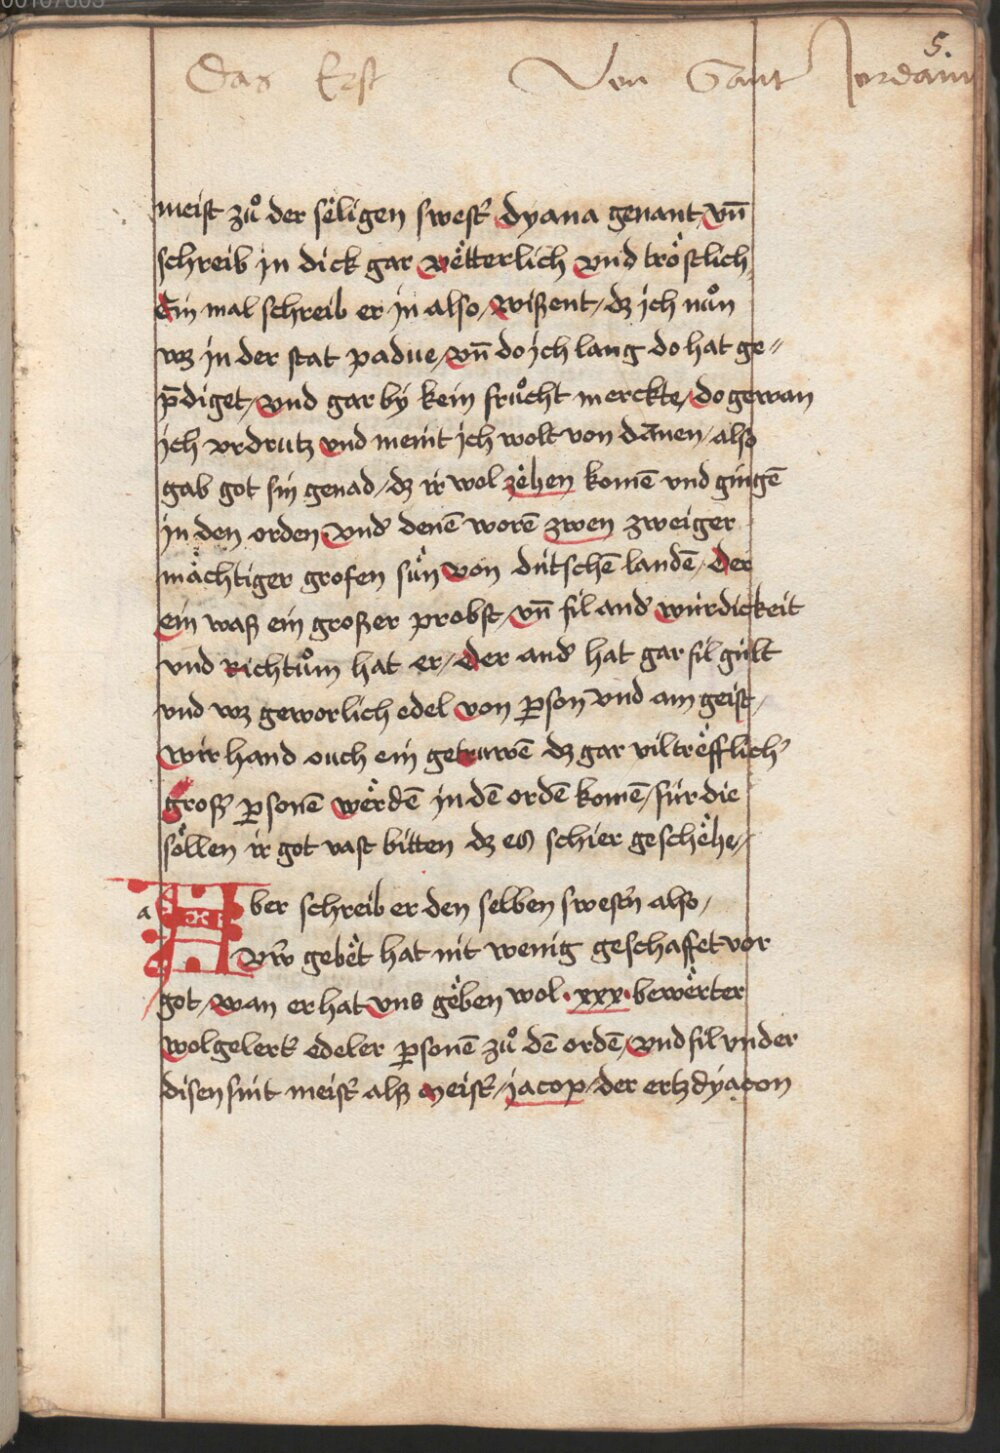 00107605
5.
Das Erst Von Sant Jordann
meist zuͦ der seͤligen swest' dyana genant / vn̄
schreib jn dick gar vetterlich vnd troͤstlich
Ein mal schreib er jn also / wißent / dz ich nuͦn
wz jn der stat padue / vn̄ do ich lang do hat ge⸗
p̄diget / vnd gar by kein fruͦcht merckte / do gewan
ich vrdrutz vnd meint ich wolt von dānen / also
gab got sin genad / dz ir wol zehen komē vnd gingē
jn den orden / vnd' denē worē zwen zweiger
maͤchtiger grosen suͤn von dutschē landē / der
ein waß ein großer probst / vn̄ fil and' wirdickeit
vnd Richtuͦm hat er / der and' hat gar fil guͤlt
vnd wz geworlich edel von ꝑson vnd am geist /
wir hand ouch ein getruwē dz gar vil treͤfflich'
groß ꝑsonē weͤrdē jn dē orden komē / fuͤr die
soͤllen ir got vast bitten dz es schier geschehe /
a Aber schreib er den selben swest'n also /
Vw̄ gebeͤt hat nit wenig geschaffet vor
got / wan er hat vns geͤben wol · xxx · beweͤrter
wolgelert' edeler ꝑsonē zuͦ dē ordē / vnd fil vnder
disen sint meist' alß meist' jacop / der ertzdyacon